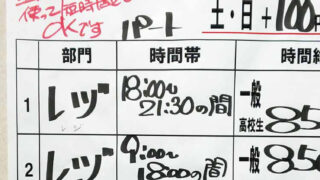 使って短時間でも
OKです
パート
土・日+100円
部門
時間帯
時間給
1
レヅ
レン
18:00~
21:30の間
一般
高校生
85
2
レヅ
9:00~
18:00の間
一般
850